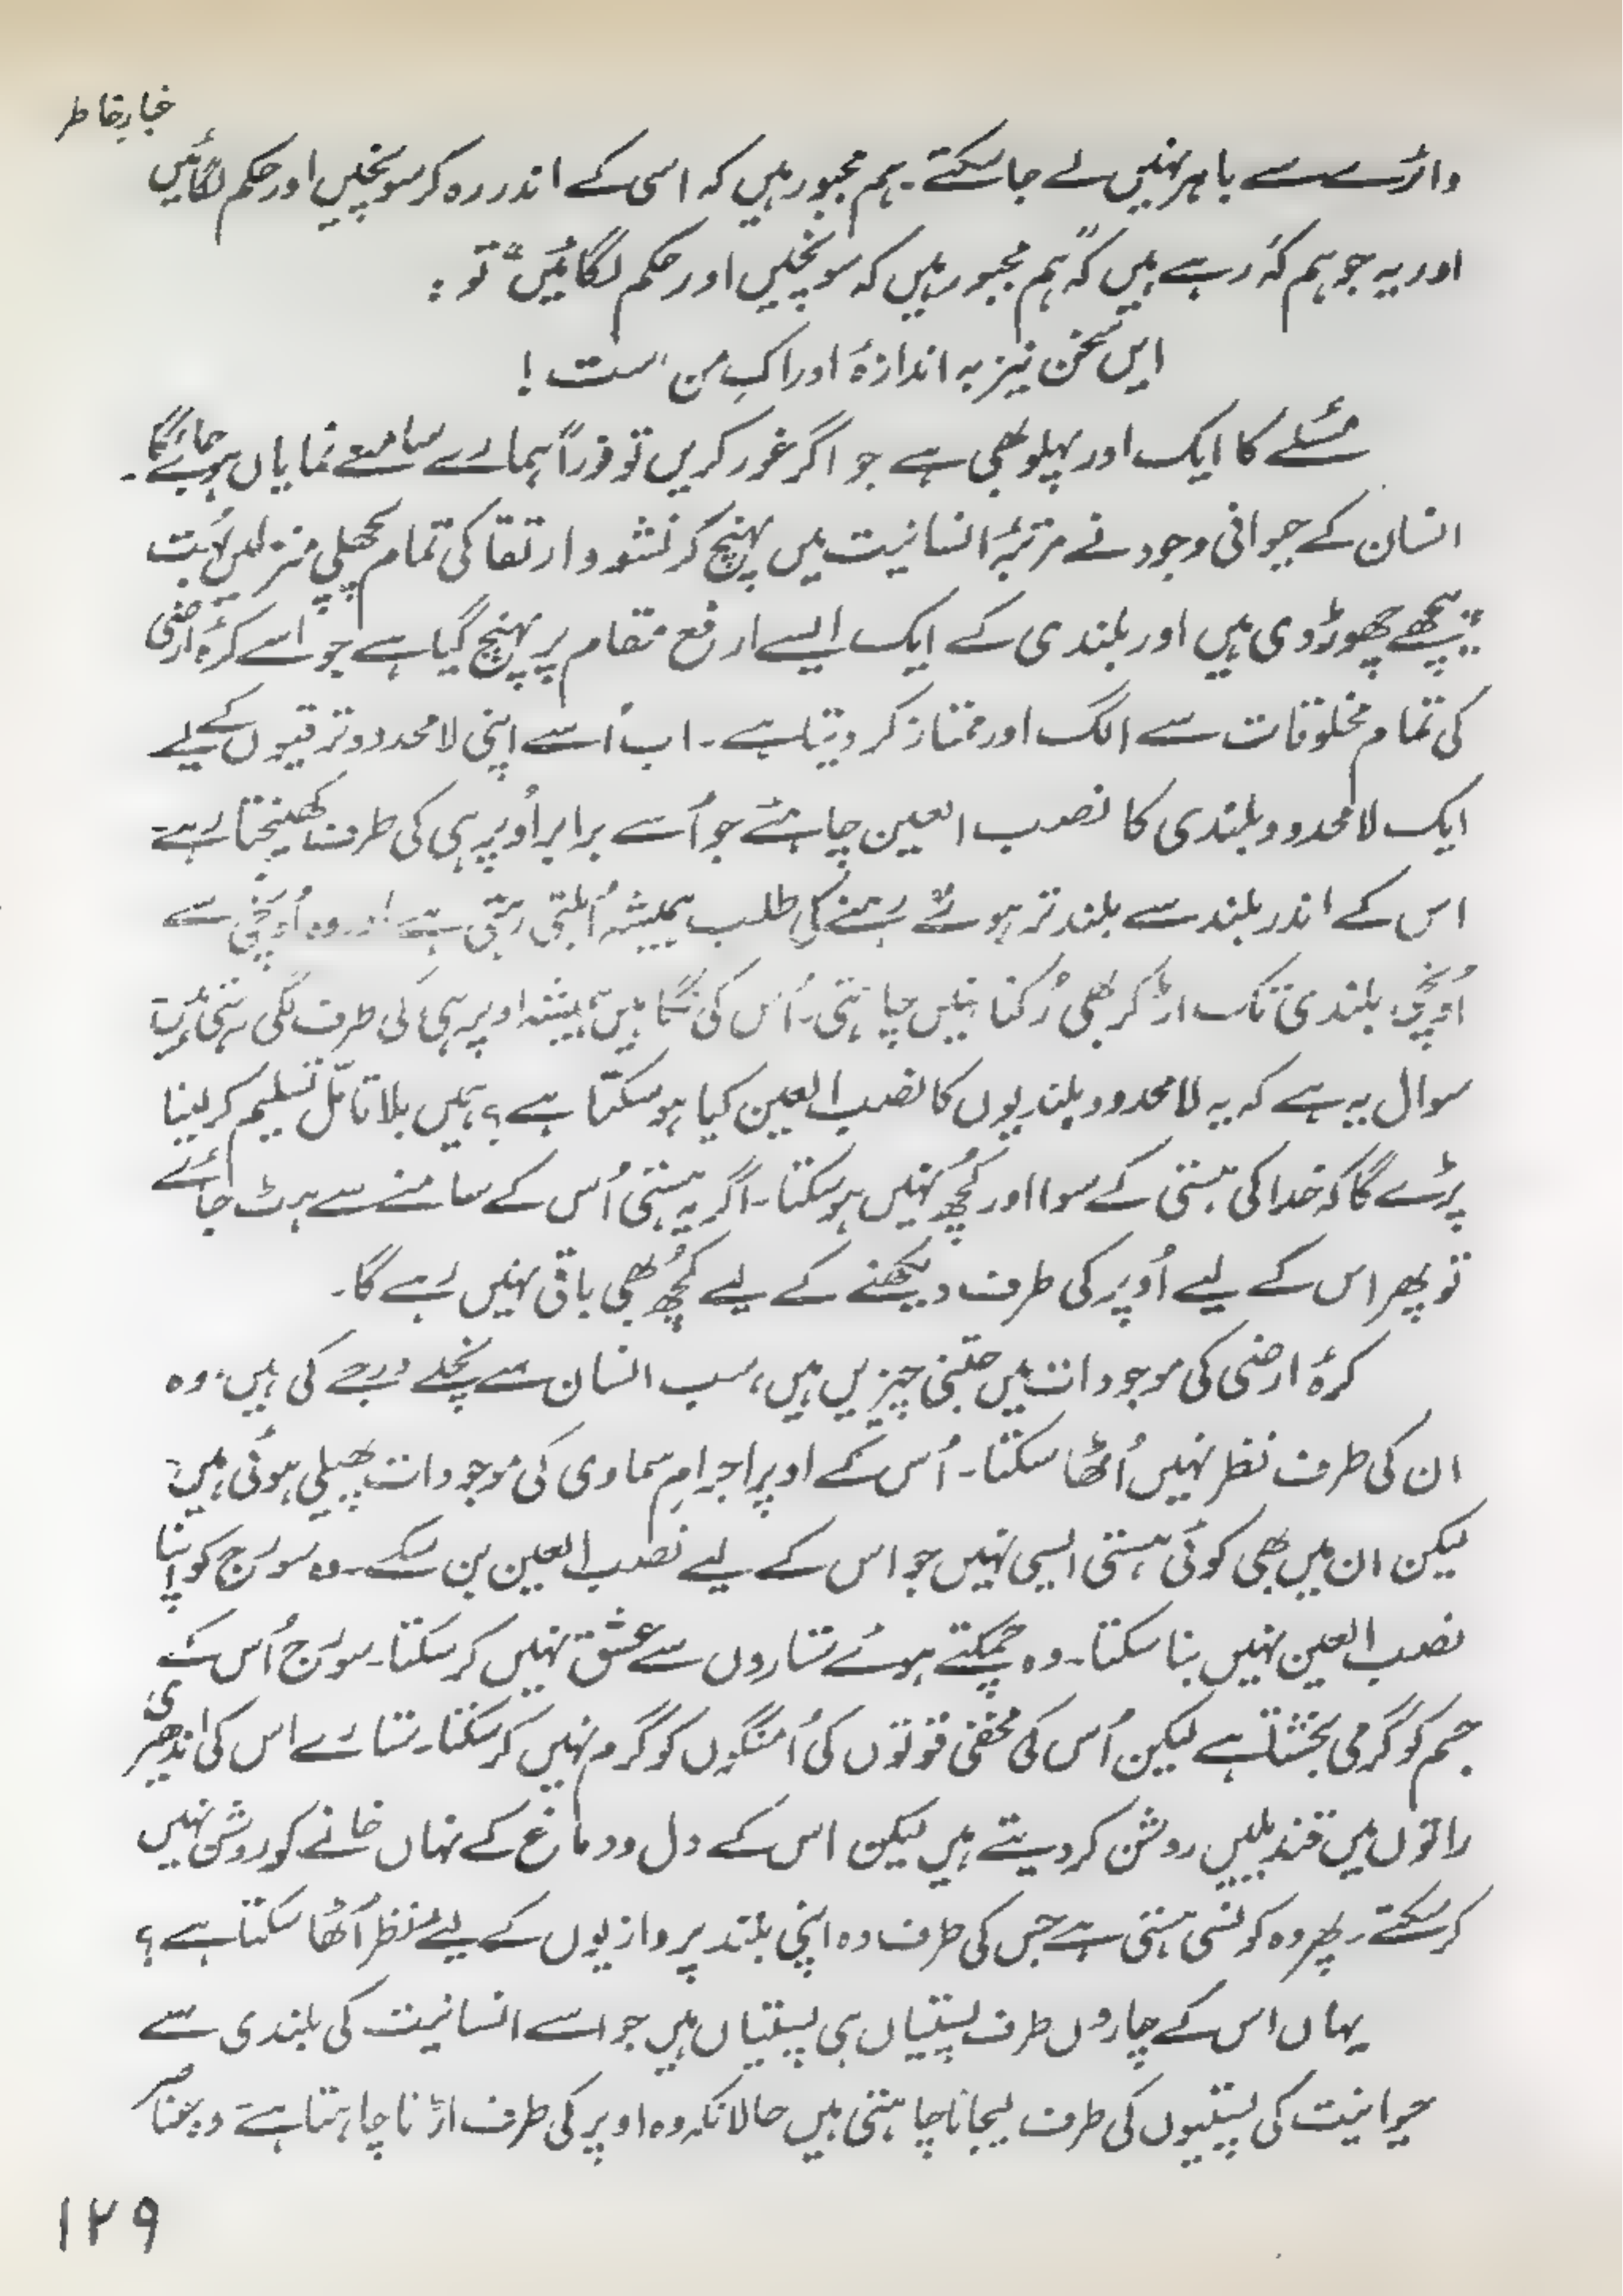 غبارِ خاطر
دائرے سے باہر نہیں لے جا سکتے۔ ہم مجبور ہیں کہ اسی کے اندر رہ کر سونچیں اور حکم لگائیں
اور یہ جو ہم کہہ رہے ہیں کہ ”ہم مجبور ہیں کہ سونچیں اور حکم لگائیں“ تو :
ایں سخن نیز بہ اندازۂ ادراکِ من است !
مسئلے کا ایک اور پہلو بھی ہے جو اگر غور کریں تو فوراً ہمارے سامنے نمایاں ہو جائے گا۔
انسان کے حیوانی وجود نے مرتبۂ انسانیت میں پہنچ کر نشو و ارتقا کی تمام پچھلی منزلیں بہت
پیچھے چھوڑ دی ہیں اور بلندی کے ایک ایسے ارفع مقام پر پہنچ گیا ہے جو اسے کرۂ ارضی
کی تمام مخلوقات سے الگ اور ممتاز کر دیتا ہے۔ اب اُسے اپنی لامحدود ترقیوں کے لیے
ایک لامحدود بلندی کا نصب العین چاہئے جو اُسے برابر اُوپر ہی کی طرف کھینچتا رہے۔
اس کے اندر بلند سے بلند تر ہوتے رہنے کی طلب ہمیشہ اُبلتی رہتی ہے اور وہ اُونچی سے
اُونچی بلندی تک اڑ کر بھی رُکنا نہیں چاہتی۔ اُس کی نگاہیں ہمیشہ اوپر ہی کی طرف لگی رہتی ہیں۔
سوال یہ ہے کہ یہ لامحدود بلندیوں کا نصب العین کیا ہو سکتا ہے؟ ہمیں بلا تامّل تسلیم کر لینا
پڑے گا کہ خدا کی ہستی کے سوا اور کچھ نہیں ہو سکتا۔ اگر یہ ہستی اُس کے سامنے سے ہٹ جائے
تو پھر اس کے لیے اُوپر کی طرف دیکھنے کے لیے کچھ بھی باقی نہیں رہے گا۔
کرۂ ارضی کی موجودات میں جتنی چیزیں ہیں، سب انسان سے نچلے درجے کی ہیں، وہ
ان کی طرف نظر نہیں اُٹھا سکتا۔ اُس کے اوپر اجرامِ سماوی کی موجودات پھیلی ہوئی ہیں؛
لیکن ان میں بھی کوئی ہستی ایسی نہیں جو اس کے لیے نصب العین بن سکے۔ وہ سورج کو اپنا
نصب العین نہیں بنا سکتا۔ وہ چمکتے ہوئے ستاروں سے عشق نہیں کر سکتا۔ سورج اُس کے
جسم کو گرمی بخشتا ہے لیکن اُس کی مخفی قوتوں کی اُمنگوں کو گرم نہیں کر سکتا۔ ستارے اس کی اندھیری
راتوں میں قندیلیں روشن کر دیتے ہیں لیکن اس کے دل و دماغ کے نہاں خانے کو روشن نہیں
کر سکتے۔ پھر وہ کونسی ہستی ہے جس کی طرف وہ اپنی بلند پروازیوں کے لیے نظر اُٹھا سکتا ہے؟
یہاں اس کے چاروں طرف پستیاں ہی پستیاں ہیں جو اسے انسانیت کی بلندی سے
حیوانیت کی پستیوں کی طرف لیجانا چاہتی ہیں حالانکہ وہ اوپر کی طرف اڑنا چاہتا ہے وہ عناصر
۱۲۹